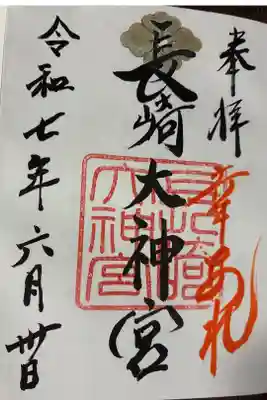 奉拝
幸あれ
長崎大神宮
長崎大神宮
令和七年六月卅日